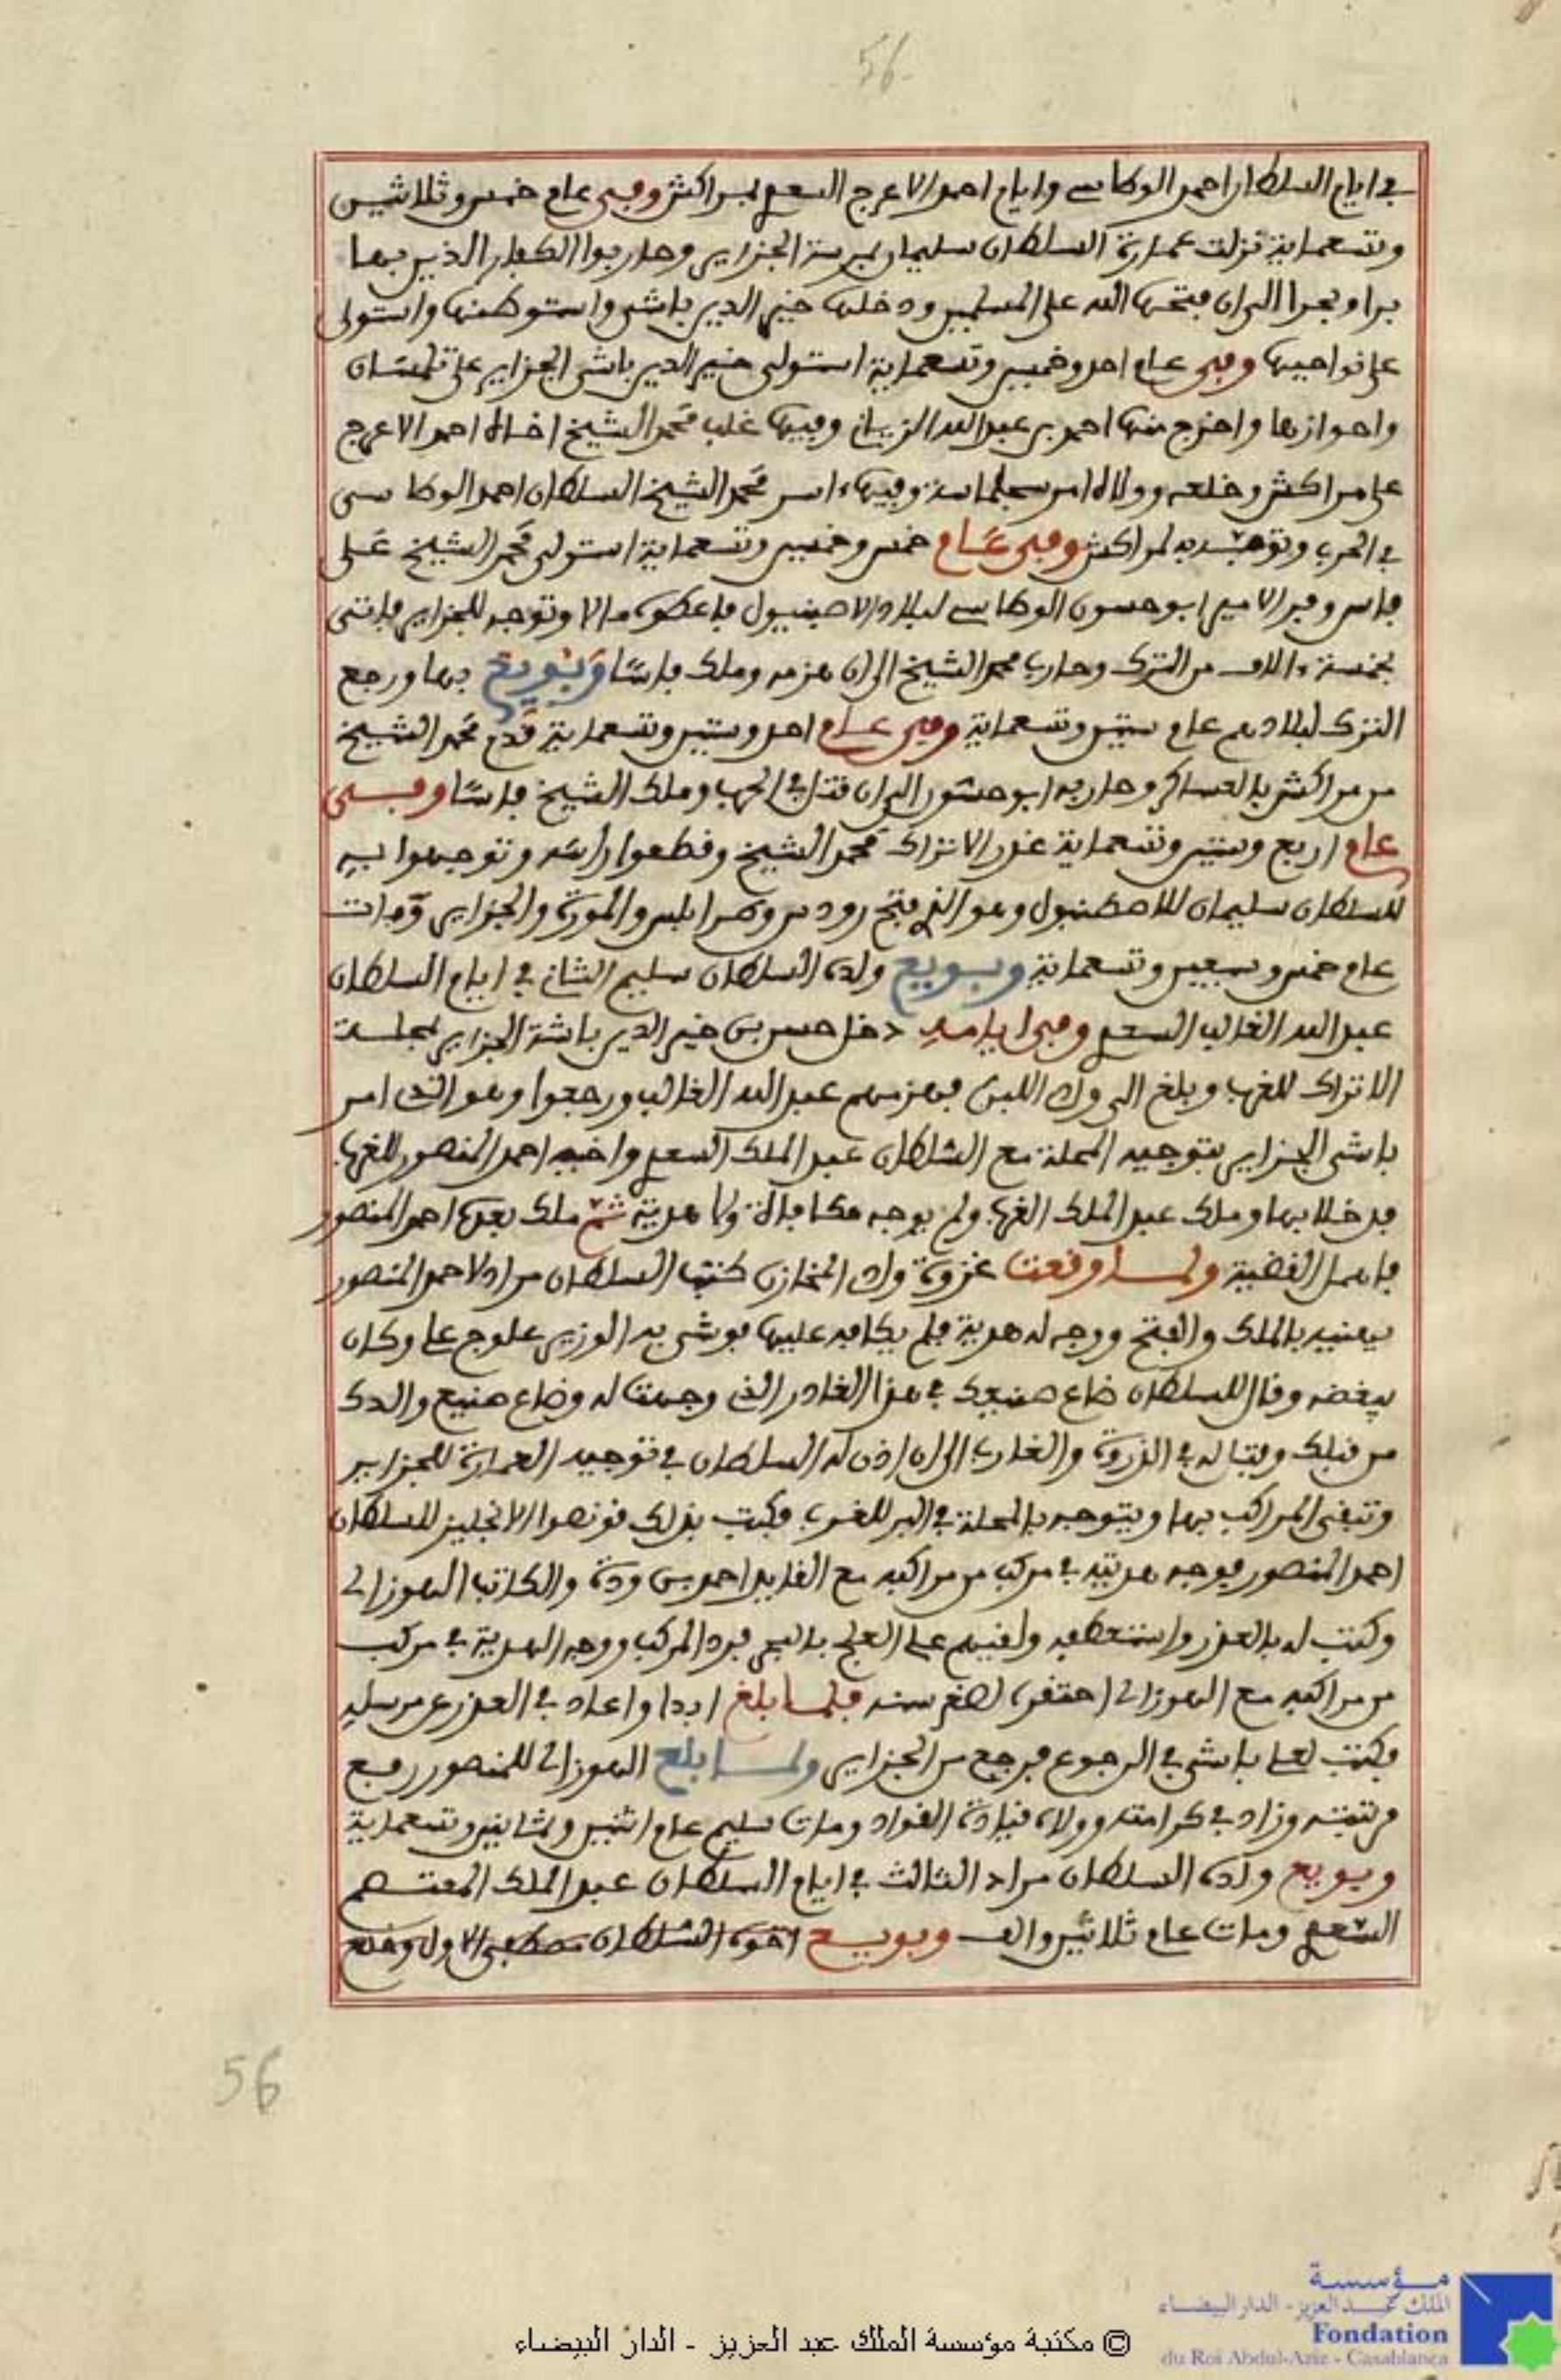 56
في ايام السلطان احمد الوطاسي وايام احمد الاعرج السعدي بمراكش وفي عام خمس وثلاثين
وتسعماية نزلت عمارة السلطان سليمان بمرسة الجزاير وحاربوا الكفار الذين بها
برا وبحرا الى ان فتحها الله على المسلمين ودخلها خير الدين باشى واستوطنها واستولى
على نواحيها وفي عام احد وخمسين وتسعماية استولى خير الدين باشى الجزاير على تلمسان
واحوازها واخرج منها احمد بن عبد الله الزياني وفيها غلب محمد الشيخ اخاه احمد الاعرج
على مراكش وخلعه وولاه امر سجلماسة وفيها اسر محمد الشيخ السلطان احمد الوطاسي
في الحرب وتوجه به لمراكش وفي عام خمس وخمسين وتسعماية استولى محمد الشيخ على
فاس وفر الامير ابو حسون الوطاسي لبلاد الاصبنيول فاعطوه مالا وتوجه للجزاير فاتى
بخمسة ءالاف من الترك وحارب محمد الشيخ الى ان هزمه وملك فاسا وبويع بها ورجع
الترك لبلادهم عام ستين وتسعماية وفي عام احد وستين وتسعماية قدم محمد الشيخ
من مراكش بالعساكر وحاربه ابو حسون الى ان قتل في الحرب وملك الشيخ فاسا وفي
عام اربع وستين وتسعماية غدر الاتراك محمد الشيخ وقطعوا راسه وتوجهوا به
للسلطان سليمان للاصطنبول وهو الذي فتح رودس وطرابلس والمورة والجزاير ومات
عام خمس وسبعين وتسعماية وبويع ولده السلطان سليم الثاني في ايام السلطان
عبد الله الغالب السعدي وفي ايامه دخل حسن بن خير الدين باشة الجزاير بمحلة
الاتراك للغرب وبلغ الى واد اللبن فهزمهم عبد الله الغالب ورجعوا وهو الذي امر
باشى الجزاير بتوجيه المحلة مع السلطان عبد الملك السعدي واخيه احمد المنصور للغرب
فدخلا بها وملك عبد الملك الغرب ولم يوجه مكافاة ولا هدية ثم ملك بعده احمد المنصور
فاهمل القضية ولما وقعت غزوة واد المخازن كتب السلطان مراد لاحمد المنصور
يهنيه بالملك والفتح ووجه له هدية فلم يكافه عليها فوشى به الوزير علوج علي وكان
يبغضه وقال للسلطان ضاع صنيعك في هذا الغادر الذي وجهت له وضاع صنيع والدك
من قبلك وفتل له في الذروة والغارب الى ان اذن له السلطان في توجيه العمارة للجزاير
وتبقى المراكب بها ويتوجه بالمحلة في البر للغرب فكتب بذلك قونصو الانجليز للسلطان
احمد المنصور فوجه هديته في مركب من مراكبه مع القايد احمد بن ودة والكاتب الهوزالي
وكتب له بالعذر واستعطفه ولقيهم على العلج بالبحر فرد المركب ووجه الهدية في مركب
من مراكبه مع الهوزالي احتقره لصغر سنه فلما بلغ ابدا واعاد في العذر عن مرسله
فكتب لعلي باشى في الرجوع فرجع من الجزاير ولما بلغ الهوزالي للمنصور رفع
مرتبته وزاد في كرامته وولاه قيادة القواد ومات سليم عام اثنين وثمانين وتسعماية
وبويع ولده السلطان مراد الثالث في ايام السلطان عبد الملك المعتصم
السعدي ومات عام ثلاثين والف وبويع اخوه السلطان مصطفى الاول وخلع
56
مؤسسة
الملك عبد العزيز - الدار البيضاء
Fondation
du Roi Abdul-Aziz - Casablanca
© مكتبة مؤسسة الملك عبد العزيز - الدار البيضاء